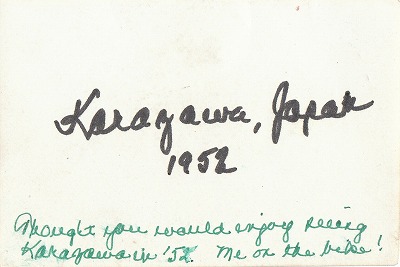 Karazawa, Japan
1952
Thought you would enjoy seeing
Karazawa in '52. Me on the bike!